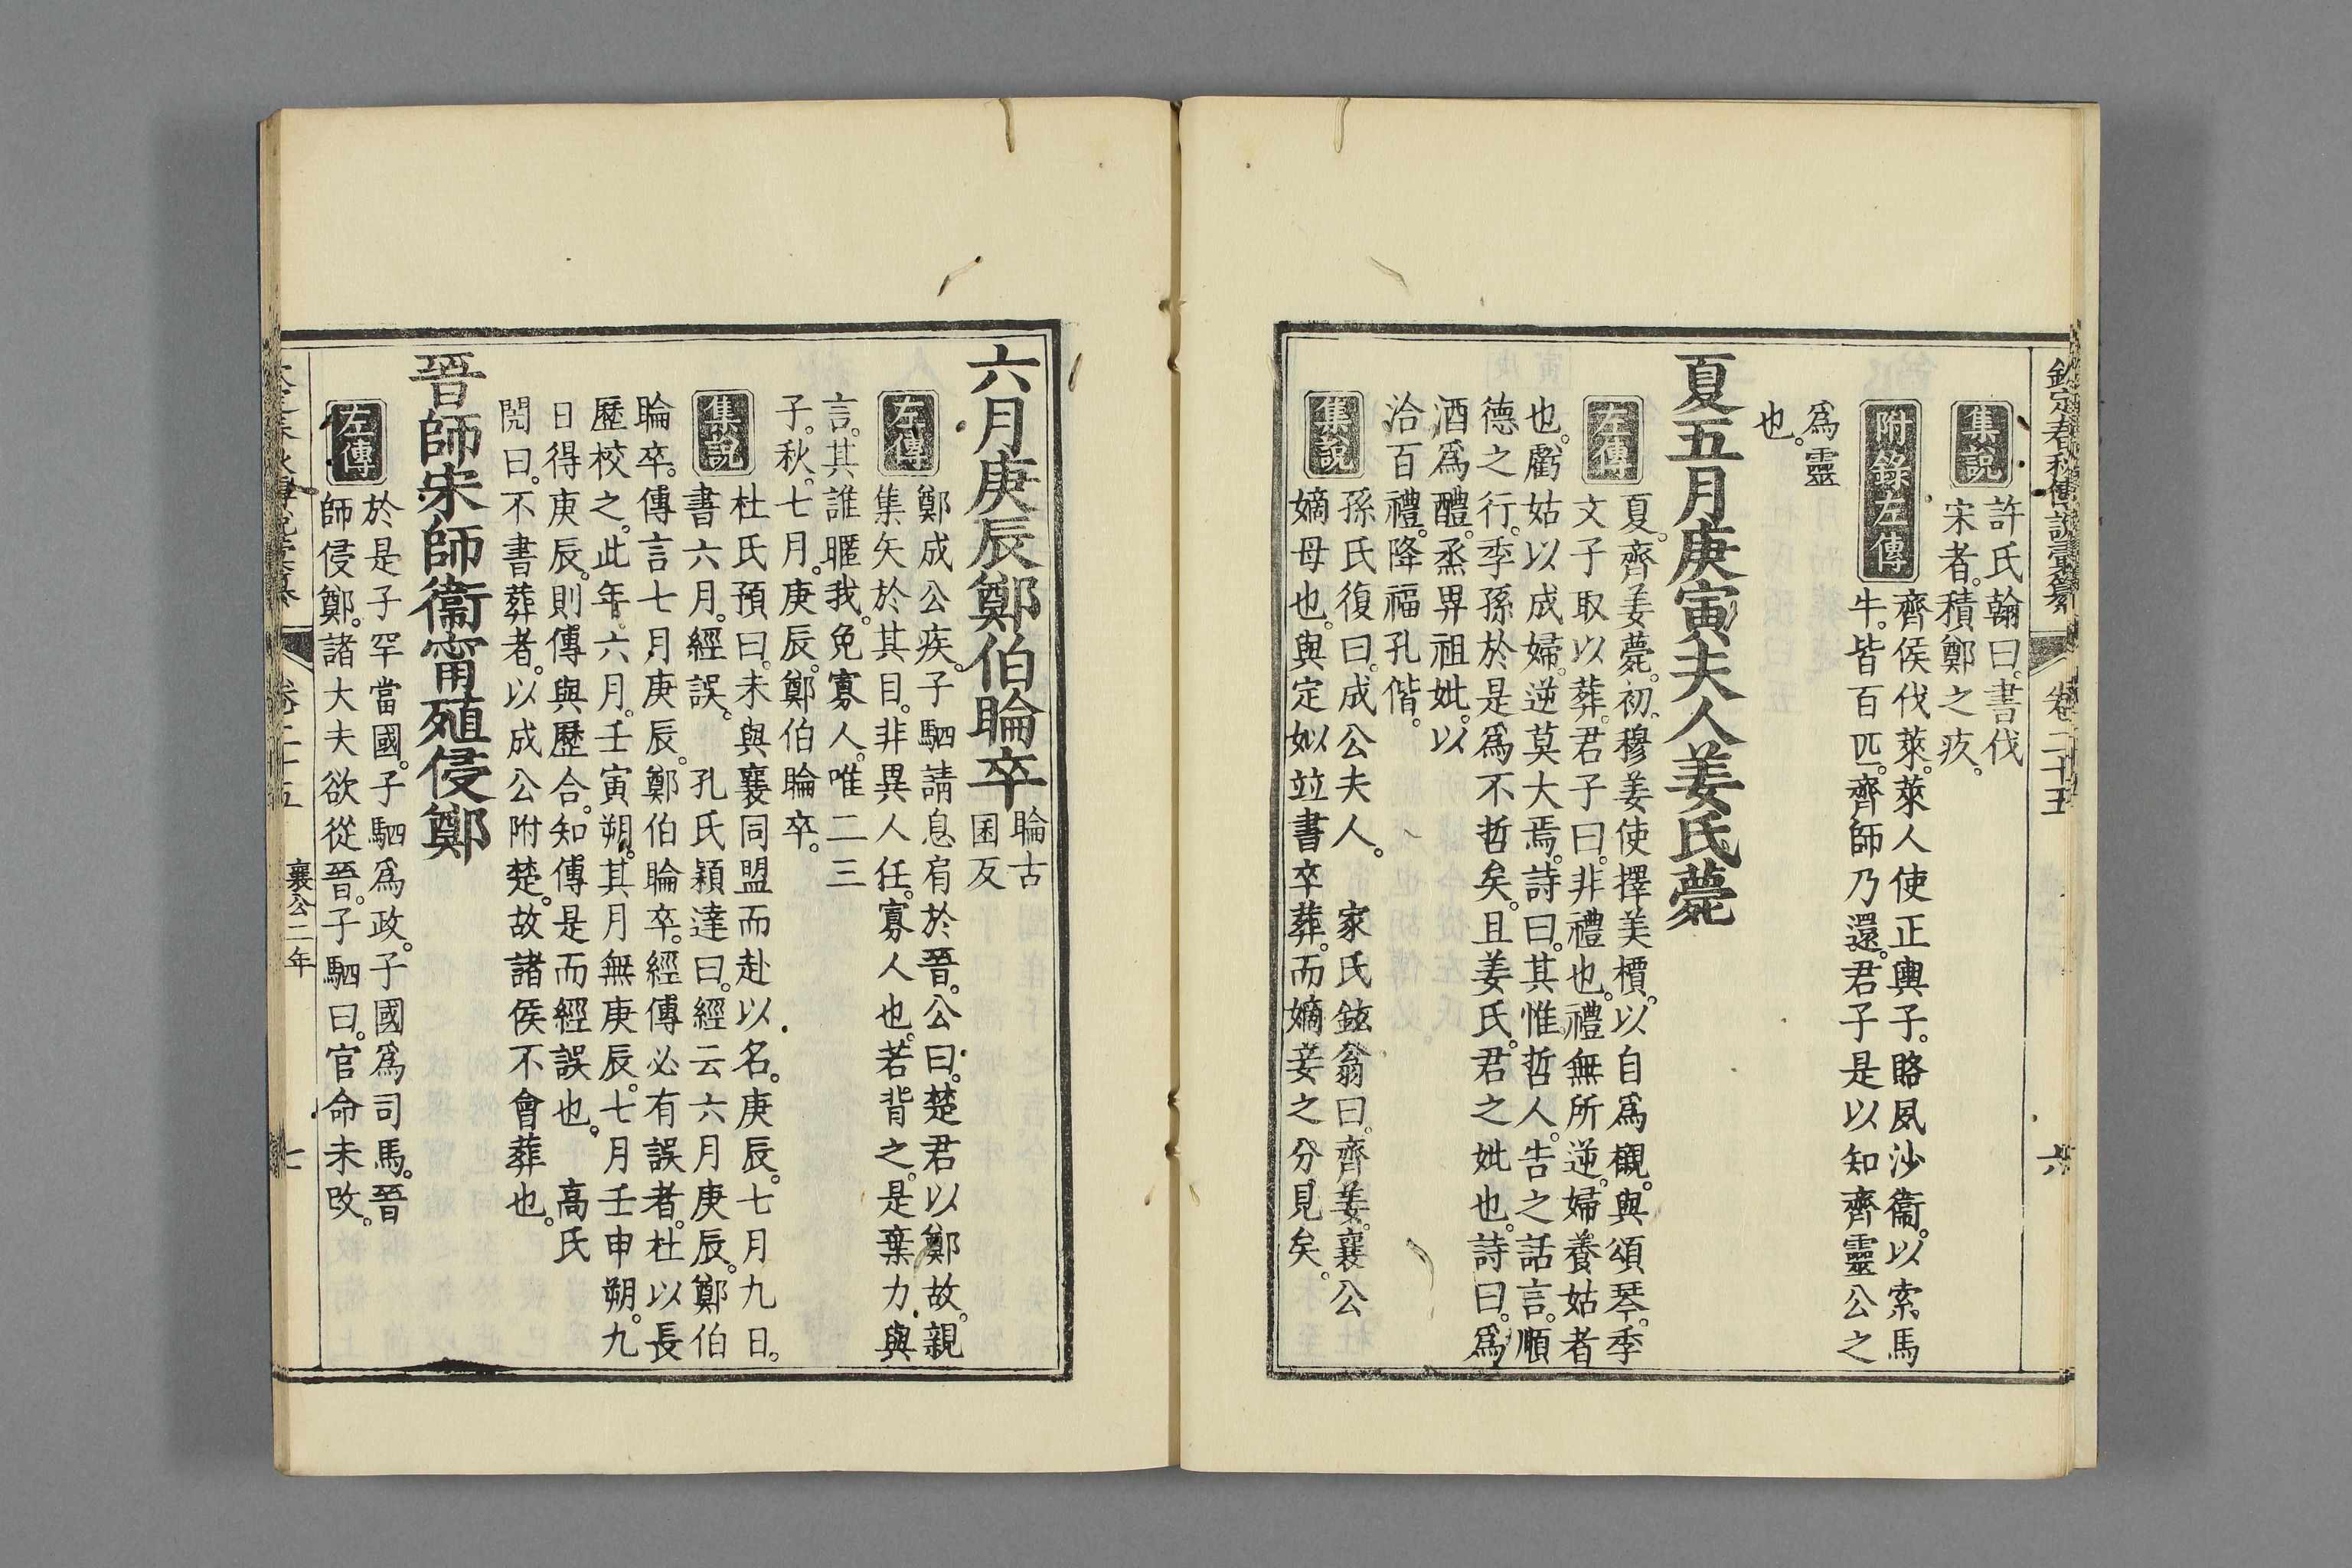 欽定春秋傳說彙纂 卷二十五 六
集說 許氏翰曰。書伐
宋者。積鄭之疚。
附錄左傳 齊侯伐萊。萊人使正輿子。賂夙沙衞。以索馬
牛。皆百匹。齊師乃還。君子是以知齊靈公之
爲靈
也。
夏五月庚寅夫人姜氏薨
左傳 夏。齊姜薨。初。穆姜使擇美檟。以自爲櫬。與頌琴。季
文子取以葬。君子曰。非禮也。禮無所逆。婦養姑者
也。虧姑以成婦。逆莫大焉。詩曰。其惟哲人。告之話言。順
德之行。季孫於是爲不哲矣。且姜氏。君之妣也。詩曰。爲
酒爲醴。烝畀祖妣。以
洽百禮。降福孔偕。
集說 孫氏復曰。成公夫人。 家氏鉉翁曰。齊姜。襄公
嫡母也。與定姒竝書卒葬。而嫡妾之分。見矣。
六月庚辰鄭伯睔卒 睔古
困反
左傳 鄭成公疾。子駟請息肩於晉。公曰。楚君以鄭故。親
集矢於其目。非異人任。寡人也。若背之。是棄力與
言。其誰暱我。免寡人。唯二三
子。秋。七月。庚辰。鄭伯睔卒。
集說 杜氏預曰。未與襄同盟而赴以名。庚辰。七月九日。
書六月。經誤。 孔氏穎達曰。經云六月庚辰。鄭伯
睔卒。傳言七月庚辰。鄭伯睔卒。經傳必有誤者。杜以長
歷校之。此年六月。壬寅朔。其月無庚辰。七月壬申朔。九
日得庚辰。則傳與歷合。知傳是而經誤也。 高氏
閌曰。不書葬者。以成公附楚。故諸侯不會葬也。
晉師宋師衞甯殖侵鄭
左傳 於是子罕當國。子駟爲政。子國爲司馬。晉
師侵鄭。諸大夫欲從晉。子駟曰。官命未改。
卷二十五 襄公二年 七